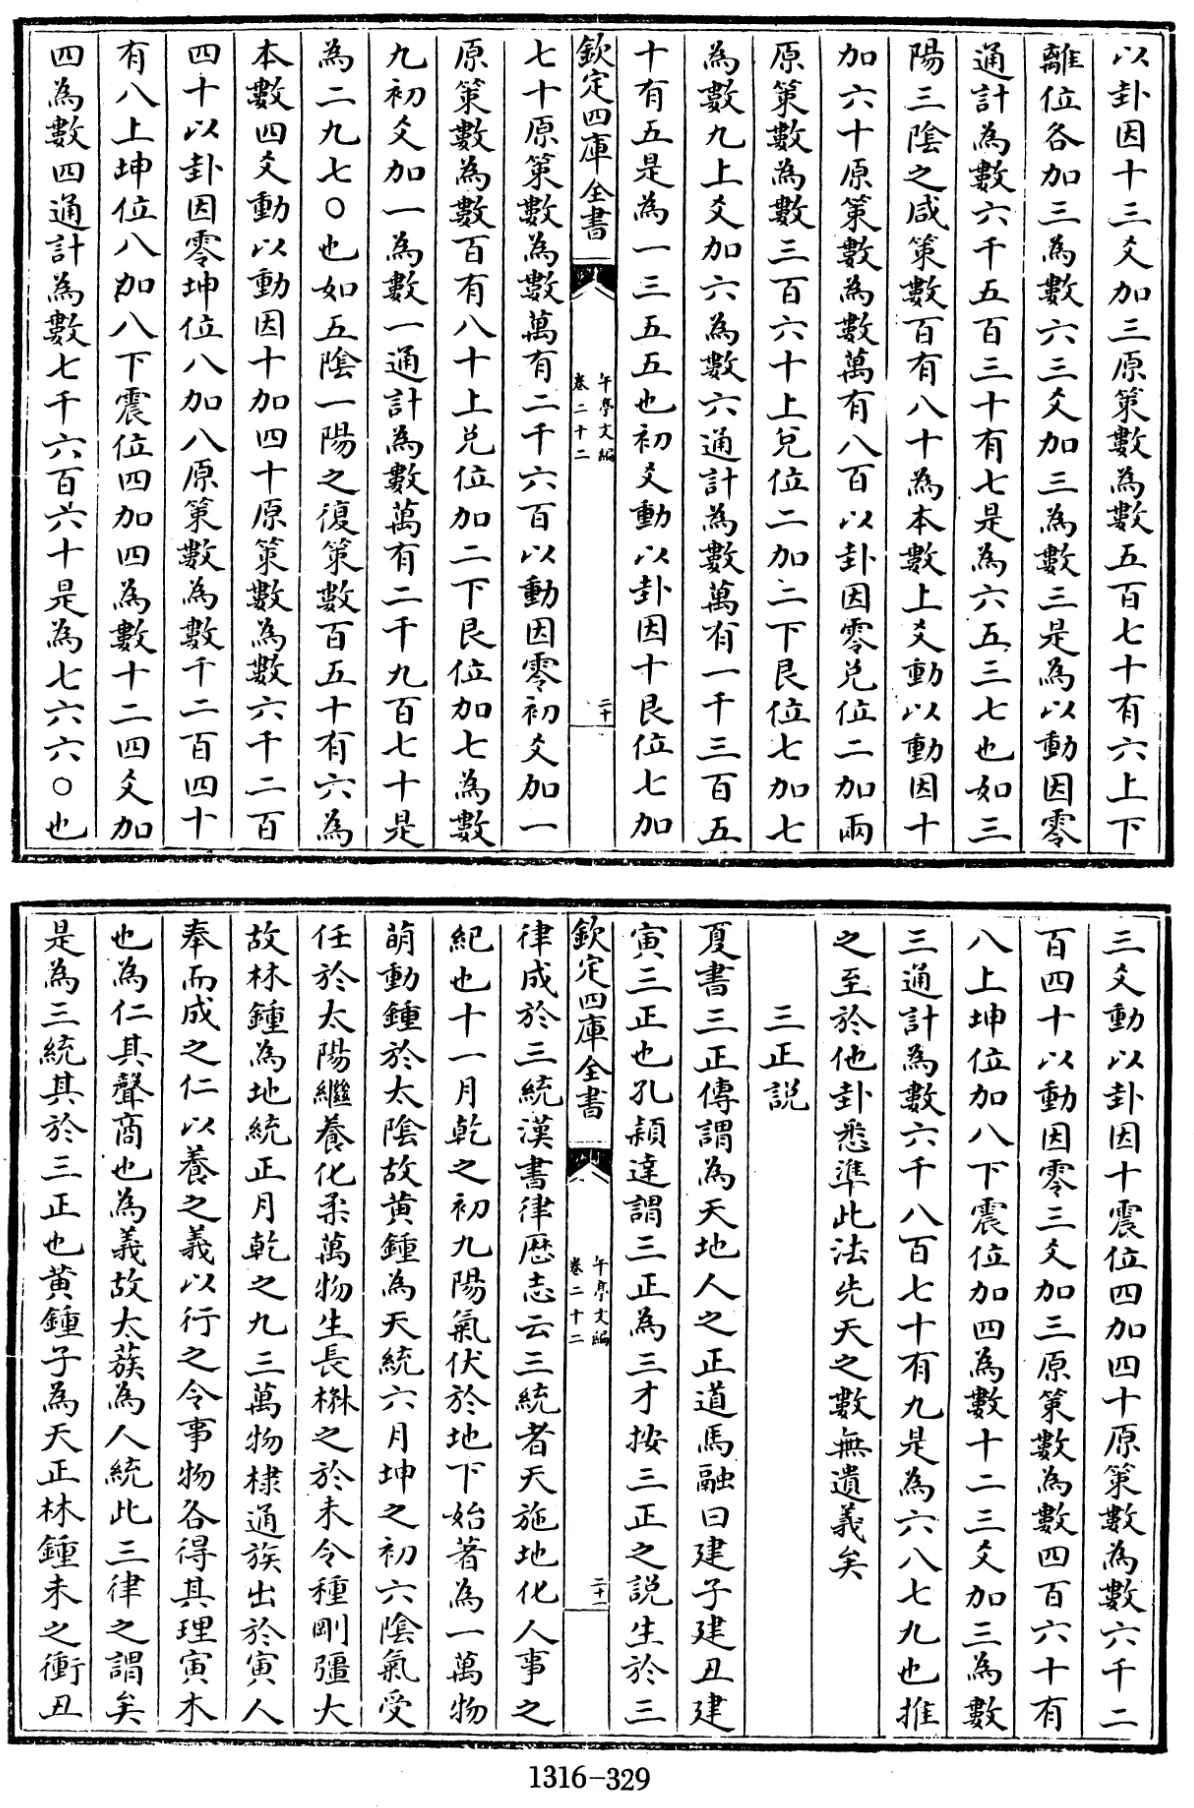 以卦因十三爻加三原策數為數五百七十有六上下
離位各加三為數六三爻加三為數三是為以動因零
通計為數六千五百三十有七是為六五三七也如三
陽三陰之咸策數百有八十為本數上爻動以動因十
加六十原策數為數萬有八百以卦因零兌位二加兩
原策數為數三百六十上兌位二加二下艮位七加七
為數九上爻加六為數六通計為數萬有一千三百五
十有五是為一三五五也初爻動以卦因十艮位七加
欽定四庫全書
午亭文編
卷二十二
二十
七十原策數為數萬有二千六百以動因零初爻加一
原策數為數百有八十上兌位加二下艮位加七為數
九初爻加一為數一通計為數萬有二千九百七十是
為二九七〇也如五陰一陽之復策數百五十有六為
本數四爻動以動因十加四十原策數為數六千二百
四十以卦因零坤位八加八原策數為數千二百四十
有八上坤位八加八下震位四加四為數十二四爻加
四為數四通計為數七千六百六十是為七六六〇也
三爻動以卦因十震位四加四十原策數為數六千二
百四十以動因零三爻加三原策數為數四百六十有
八上坤位加八下震位加四為數十二三爻加三為數
三通計為數六千八百七十有九是為六八七九也推
之至於他卦悉準此法先天之數無遺義矣
三正説
夏書三正傳謂為天地人之正道馬融曰建子建丑建
寅三正也孔穎達謂三正為三才按三正之説生於三
欽定四庫全書
午亭文編
卷二十二
二十一
律成於三統漢書律厯志云三統者天施地化人事之
紀也十一月乾之初九陽氣伏於地下始著為一萬物
萌動鍾於太陰故黄鍾為天統六月坤之初六陰氣受
任於太陽繼養化柔萬物生長楙之於未令種剛彊大
故林鍾為地統正月乾之九三萬物棣通族出於寅人
奉而成之仁以養之義以行之令事物各得其理寅木
也為仁其聲商也為義故太蔟為人統此三律之謂矣
是為三統其於三正也黄鍾子為天正林鍾未之衝丑
1316-329